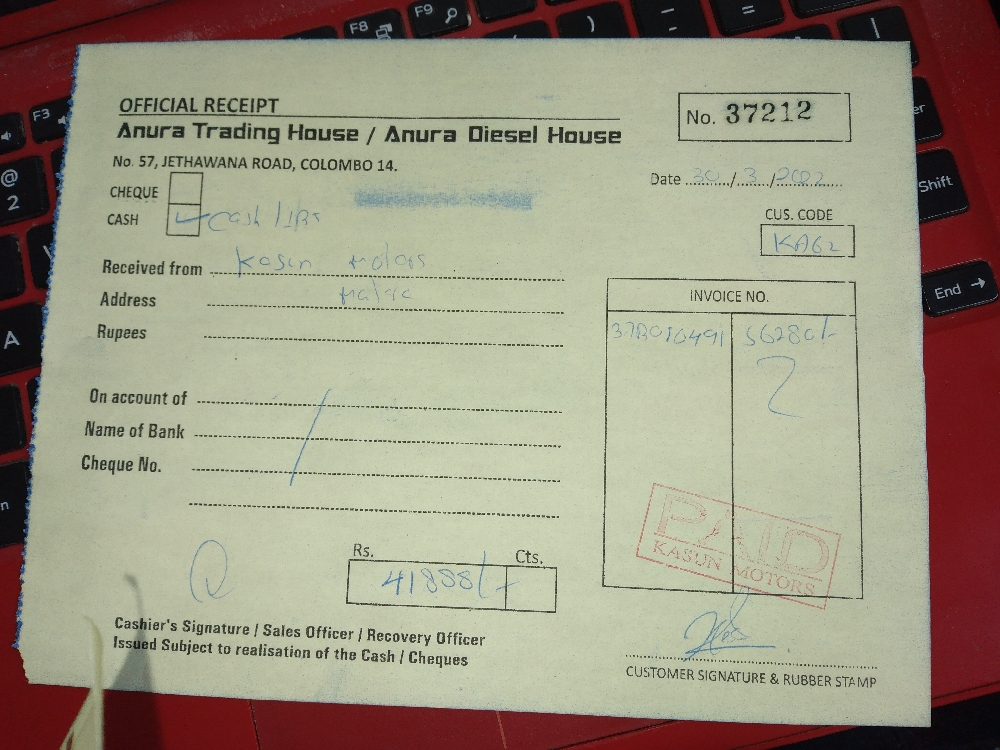 OFFICIAL RECEIPT
Anura Trading House / Anura Diesel House
No. 57, JETHAWANA ROAD, COLOMBO 14.
No. 37212
Date 30/3/2022
CHEQUE
CASH Cash
CUS. CODE
KA62
Received from Kasun Motors
Address
Rupees
INVOICE NO.
56280/-
On account of
Name of Bank
Cheque No.
PAID
KASUN MOTORS
Rs. Cts.
41888/-
Cashier's Signature / Sales Officer / Recovery Officer
Issued Subject to realisation of the Cash / Cheques
CUSTOMER SIGNATURE & RUBBER STAMP
F8
F9
F3
@
2
A
Shift
End →